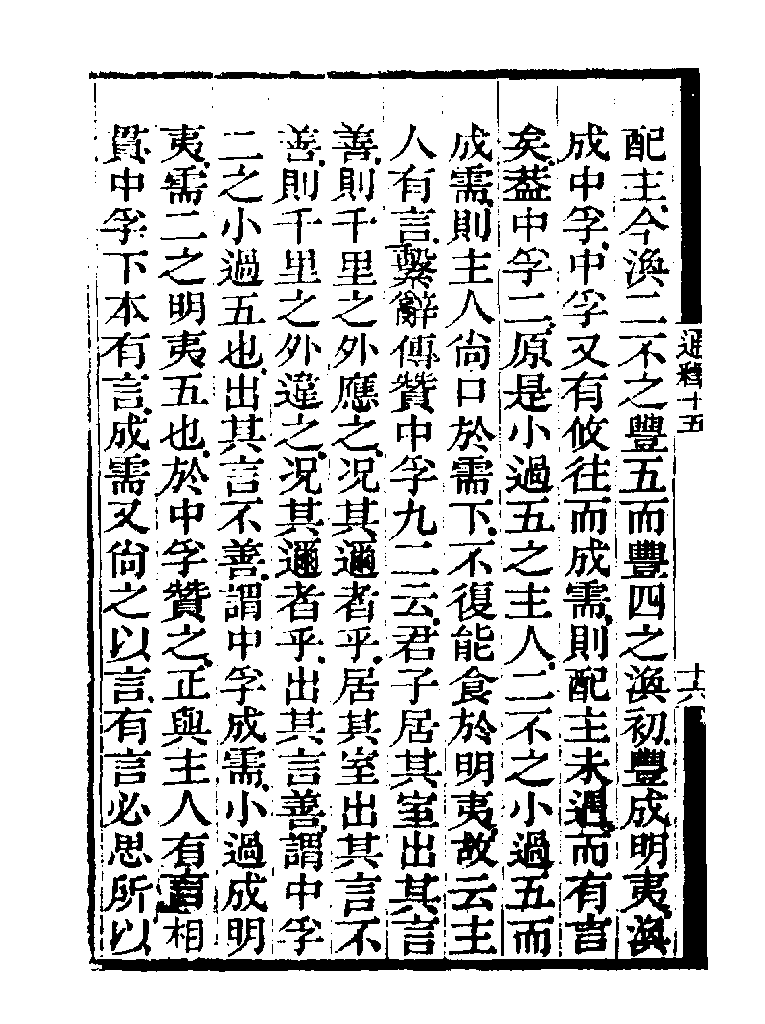 配主今渙二不之豐五而豐四之渙初豐成明夷渙
成中孚中孚又有攸往而成需則配主未遇而有言
矣葢中孚二原是小過五之主人二不之小過五而
成需則主人尙口於需下不復能食於明夷故云主
人有言繫辭傳贊中孚九二云君子居其室出其言
善則千里之外應之况其邇者乎居其室出其言不
善則千里之外違之况其邇者乎出其言善謂中孚
二之小過五也出其言不善謂中孚成需小過成明
夷需二之明夷五也於中孚贊之正與主人有言相
貫中孚下本有言成需又尙之以言有言必思所以
通釋十五
十六